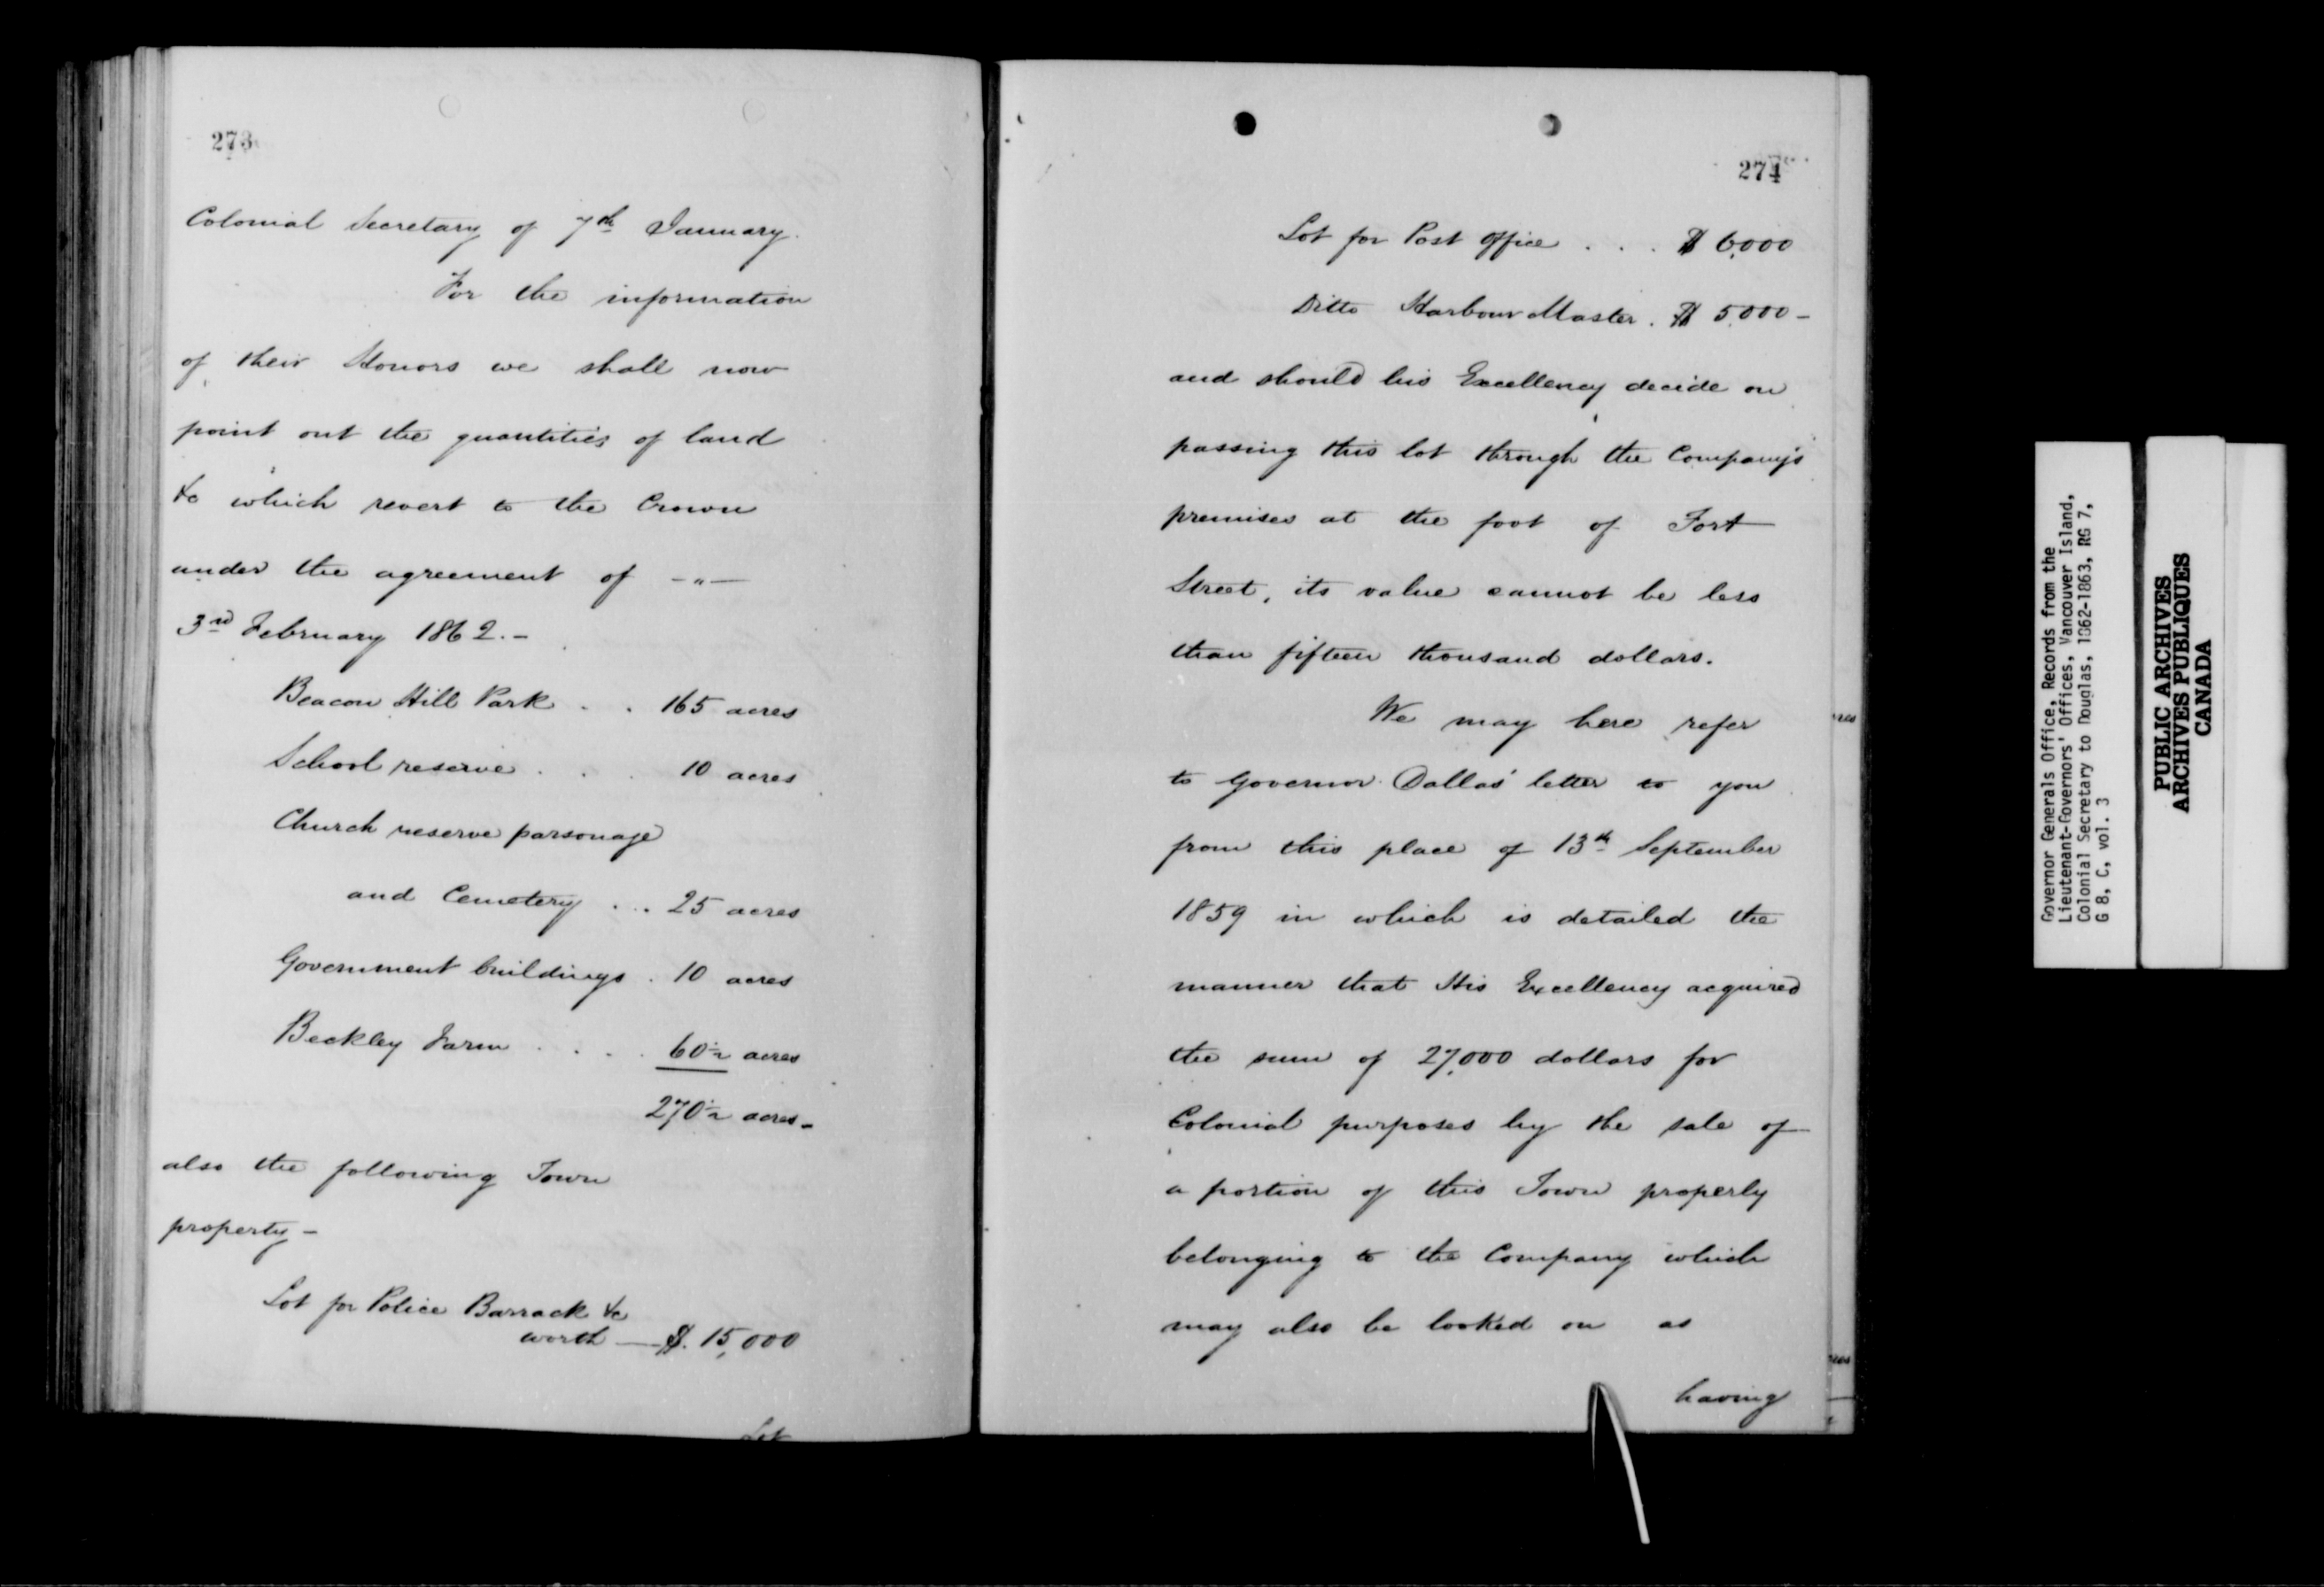 273
Colonial Secretary of 7th January.
For the information
of their Honors we shall now
point out the quantities of land
&c which revert to the Crown
under the agreement of -"-
3rd February 1862.-
Beacon Hill Park . . 165 acres
School reserve . . . 10 acres
Church reserve parsonage
and Cemetery . . . 25 acres
Government buildings . 10 acres
Beckley Farm . . . . 60½ acres
270½ acres-
also the following Town
property-
Lot for Police Barrack &c
worth — $. 15,000
Lot
274
Lot for Post office . . . $ 6,000
Ditto Harbour Master . $ 5,000-
and should his Excellency decide on
passing this lot through the Company's
premises at the foot of Fort
Street, its value cannot be less
than fifteen thousand dollars.
We may here refer
to Governor Dallas' letter to you
from this place of 13th September
1859 in which is detailed the
manner that His Excellency acquired
the sum of 27,000 dollars for
Colonial purposes by the sale of
a portion of this Town property
belonging to the Company which
may also be looked on as
having
Governor Generals Office, Records from the
Lieutenant-Governors' Offices, Vancouver Island,
Colonial Secretary to Douglas, 1862-1863, RG 7,
G 8, C, vol. 3
PUBLIC ARCHIVES
ARCHIVES PUBLIQUES
CANADA